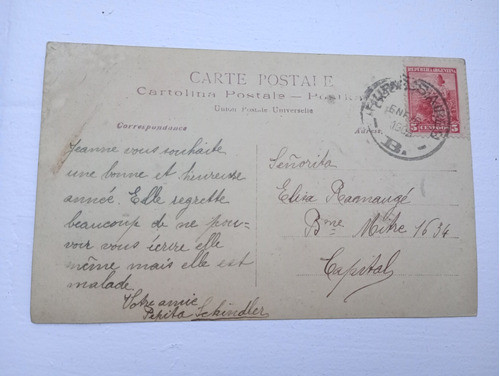 CARTE POSTALE
Cartolina Postale — Pos
Union Postale Universelle
Correspondance
Jeanne vous souhaite
une bonne et heureuse
année. Elle regrette
beaucoup de ne pou-
voir vous écrire elle
même mais elle est
malade
Votre amie
Pepita Schindler
REPUBLICA ARGENTINA
5 CENTAVOS 5
B.
Señorita
Elisa Ramaugé
Bme Mitre 1634
Capital